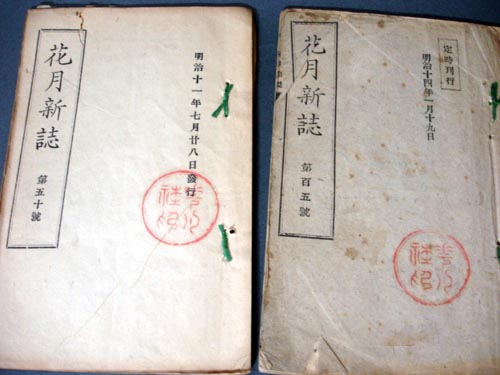 明治十一年七月廿八日發行
花月新誌
第五十號
定時刊行
明治十四年一月十九日
花月新誌
第百五號